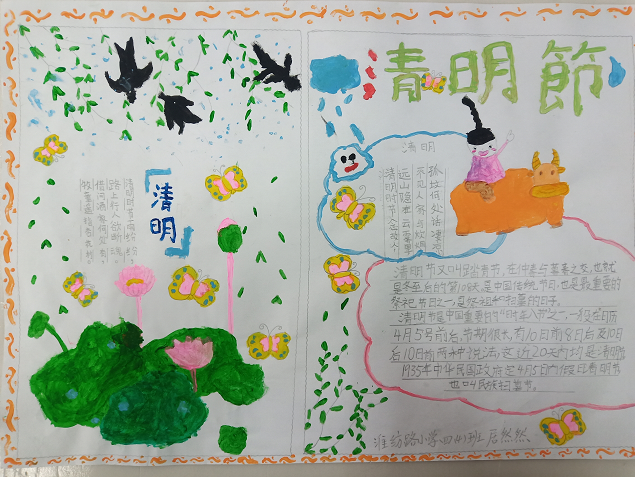 清明
清明時节雨纷纷,
路上行人欲断魂。
借问酒家何处有,
牧童遥指杏花村。
清明節
清明
清明节又叫踏青节,在仲春与暮春之交,也就
是冬至后的第108天,是中国传统节日,也是最重要的
祭祀节日之一,是祭祖和扫墓的日子。
清明节是中国重要的"时年八节"之一,一般在公历
4月5号前后,节期很长,有10日前8日后及10日
后10日前两种说法,这近20天内均是清明节。
1935年中华民国政府定4月5日为清明节
也叫民族扫墓节。
潍纺路小学四(4)班